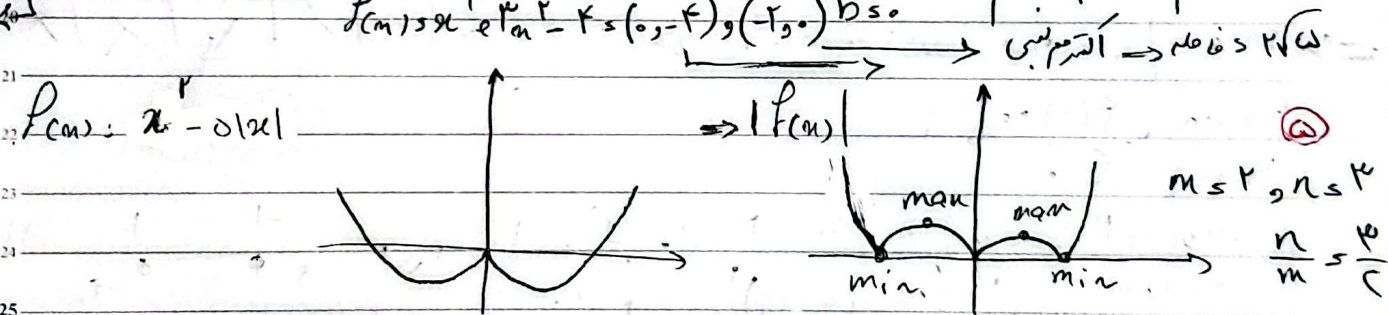 20 f(x) = x³ + 3x² - ۴ = (0, -۴) و (-۲, 0) b = 0
⟶ اکسترمم نسبی ⟹ فاصله = ۲√۵
21
f(x) = x² - ۵|x| ⟹ |f(x)| ۵
22
23 max max m = ۲ و n = ۳
24 min. min n/m = ۳/۲
25